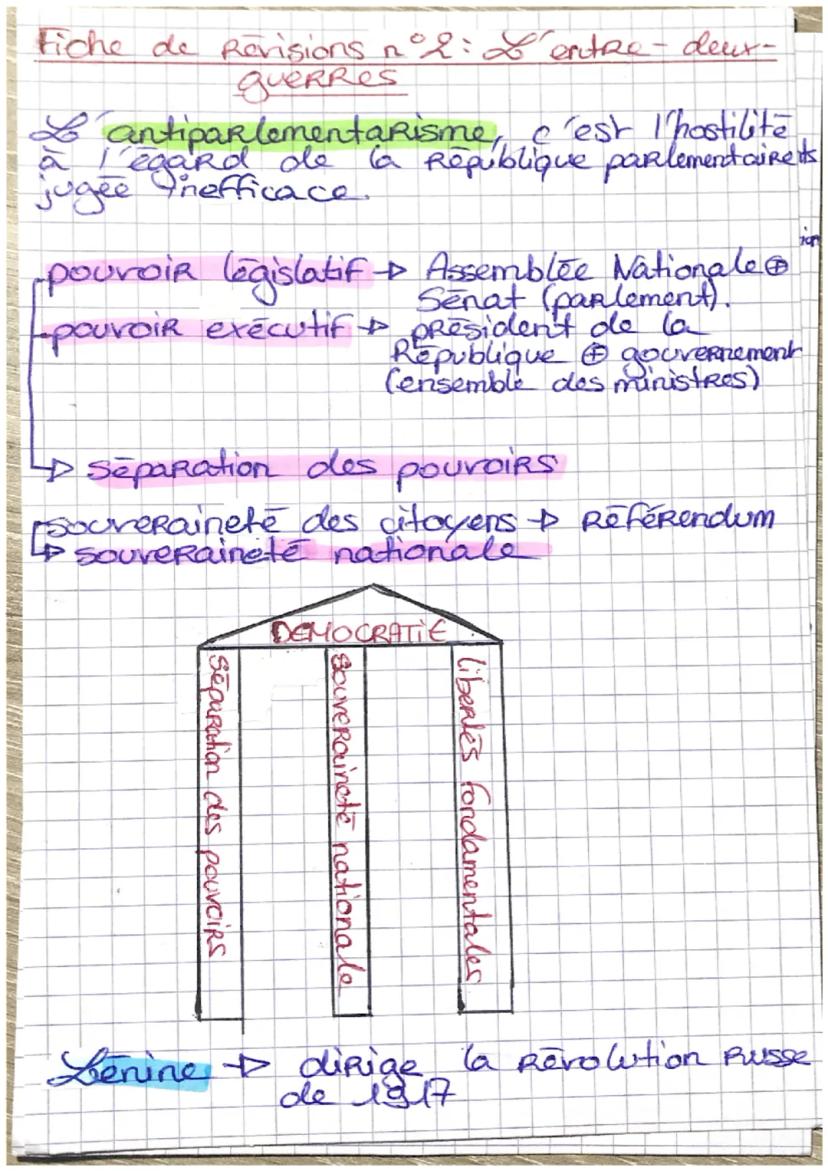 Fiche de Révisions n°2 : L'entre-deux-
guerres
L'antiparlementarisme, c'est l'hostilité
à l'égard de la République parlementaire
jugée inefficace.
pouvoir législatif → Assemblée Nationale ⊕
Sénat (parlement).
pouvoir exécutif → président de la
République ⊕ gouvernement
(ensemble des ministres)
→ séparation des pouvoirs
souveraineté des citoyens → Référendum
→ souveraineté nationale
DEMOCRATIE
séparation des pouvoirs
souveraineté nationale
libertés fondamentales
Lénine → dirige la Révolution Russe
de 1917